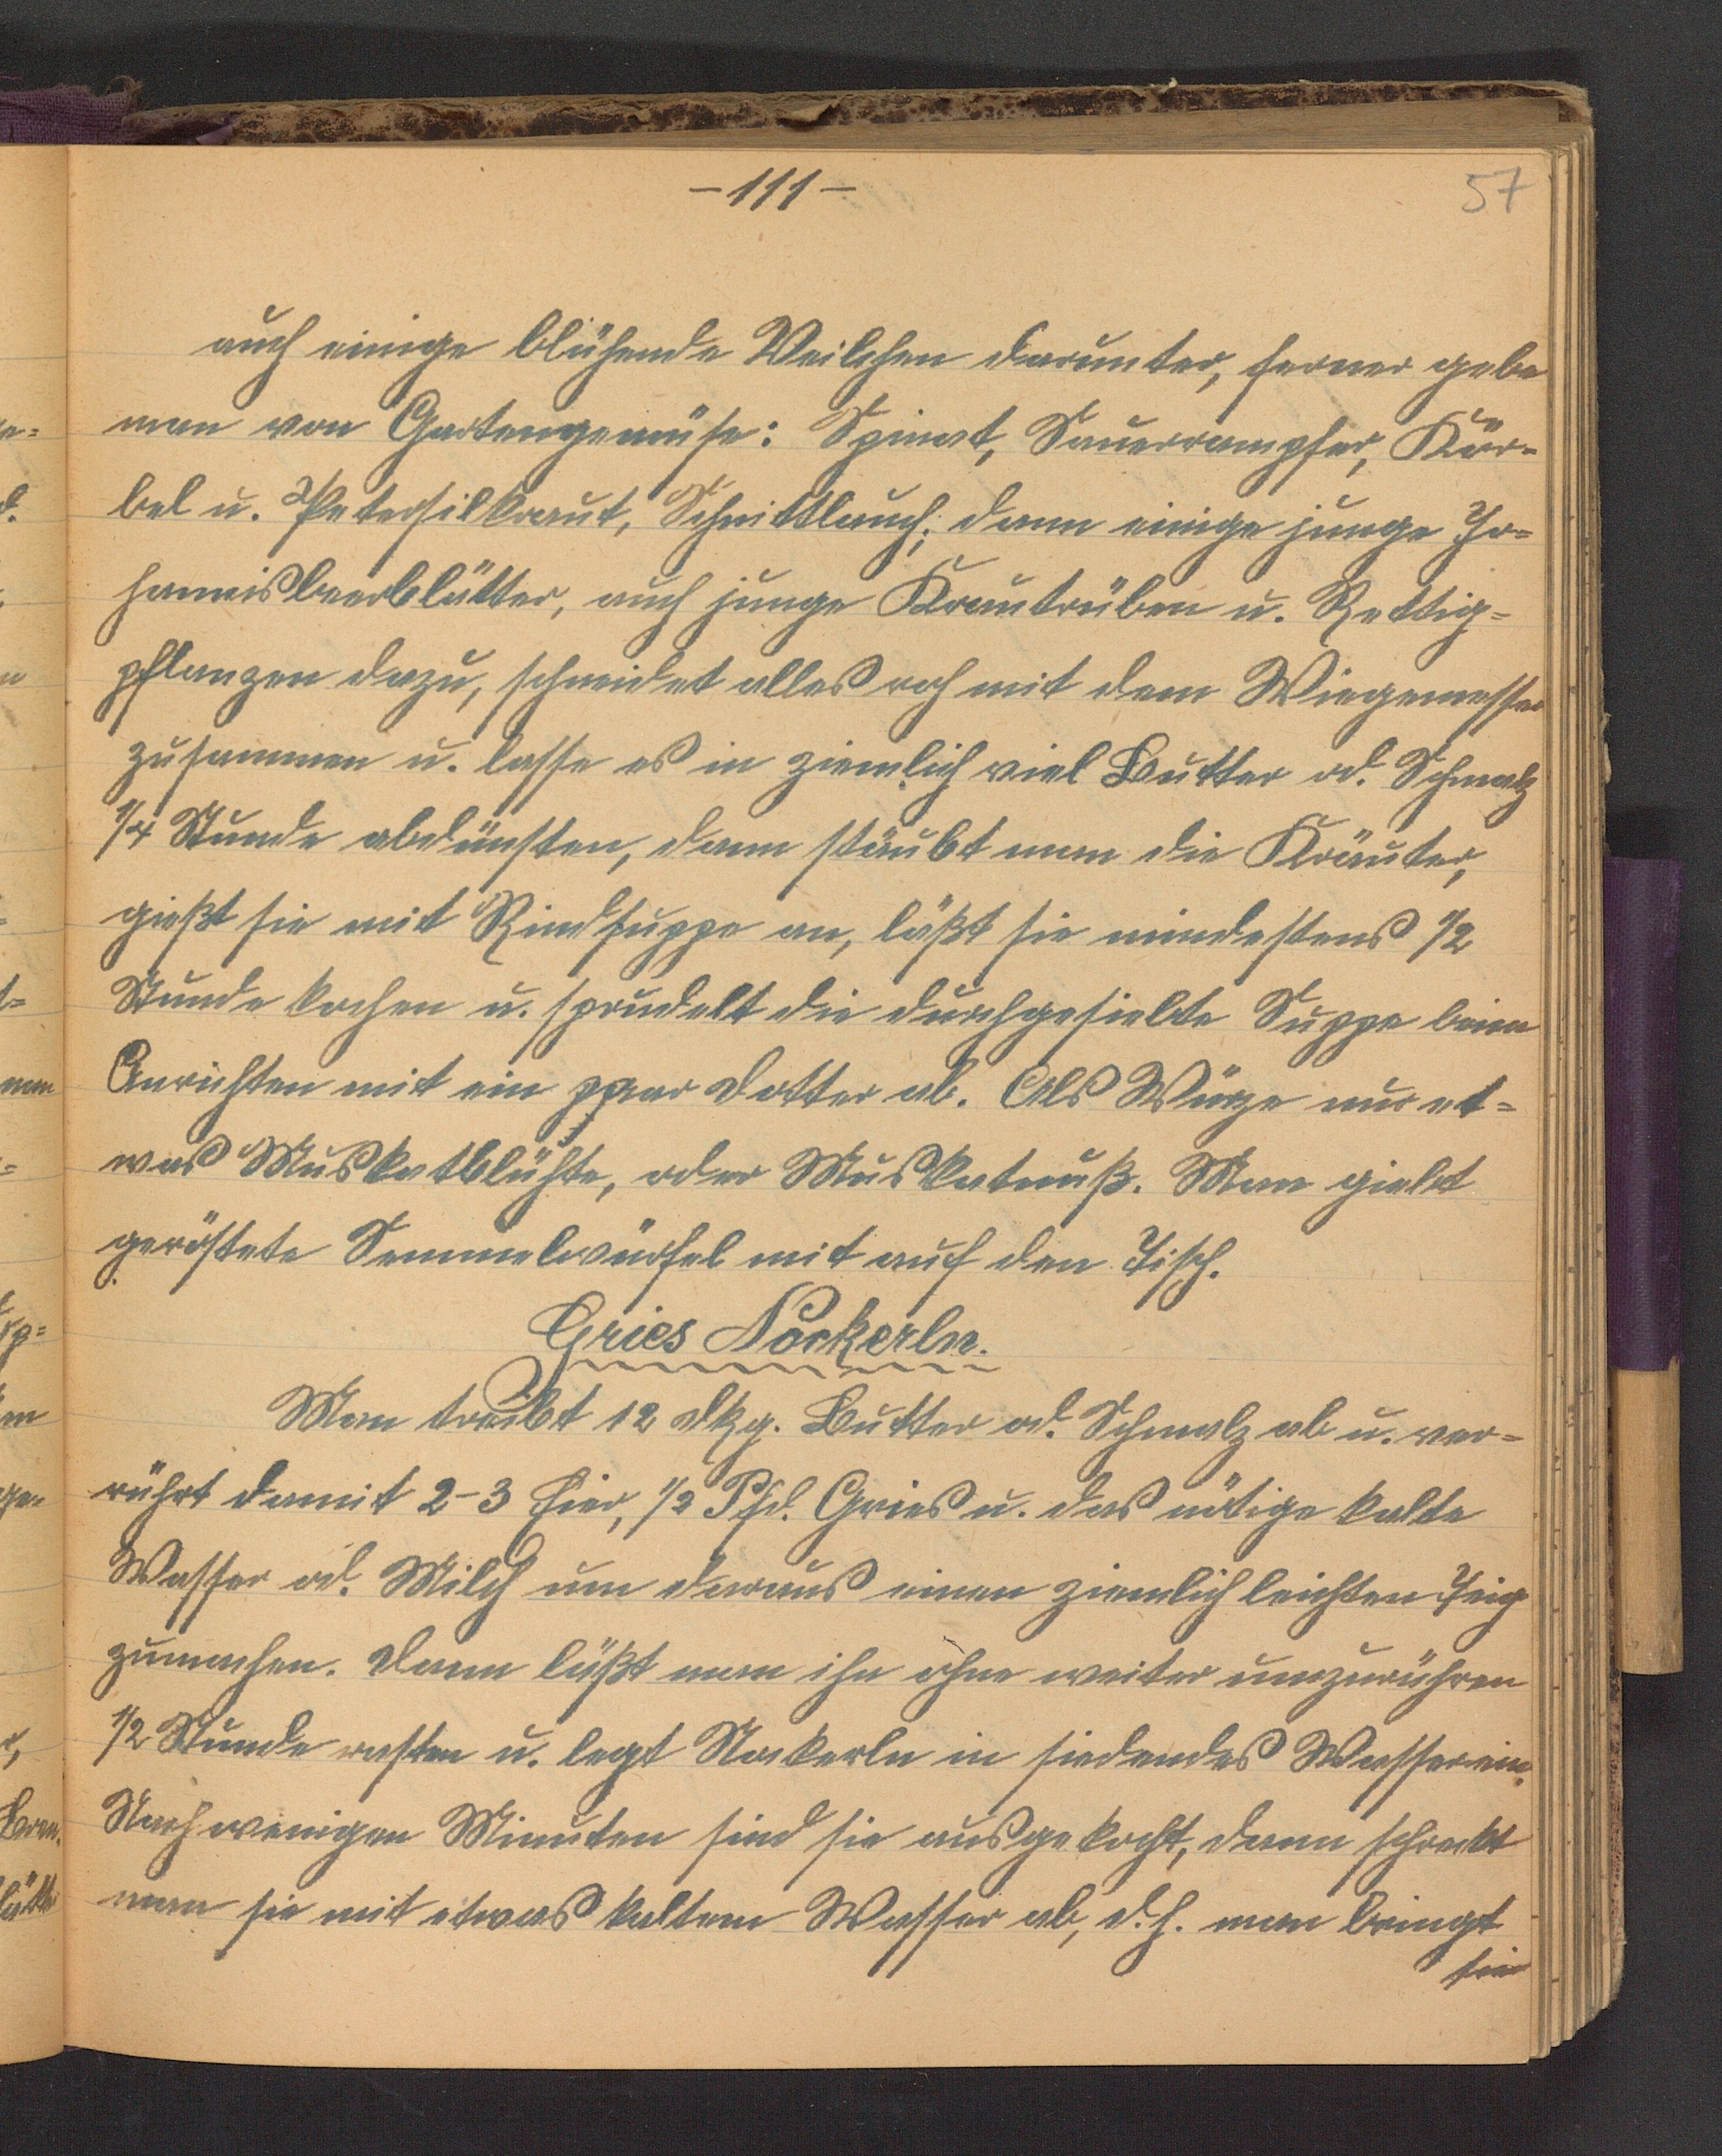 -111-
57
auch einige blühende Veilchen darunter, ferner gebe
man von Gartengemüse: Spinat, Sauerrampfer, Kör-
bel u. Petersilkraut, Schnittlauch; dann einige junge Jo-
hannisbeerblätter, auch junge Krautrüben u. Rettig-
pflanzen dazu, schneidet alles roh mit dem Wiegemesser
zusammen u. lasse es in ziemlich viel Butter od. Schmalz
1/4 Stunde abdünsten, dann stäubt man die Kräuter,
gießt sie mit Rindsuppe an, läßt sie mindestens 1/2
Stunde kochen u. sprudelt die durchgesiebte Suppe beim
Anrichten mit ein paar Dotter ab. Als Würze nur et-
was Muskatblühte, oder Muskatnuß. Man giebt
geröstete Semmelwürfel mit auf den Tisch.
Gries Nockerln.
Man treibt 12 dkg. Butter od. Schmalz ab u. ver-
rührt damit 2-3 Eier, 1/2 Pfd. Gries u. das nötige kalte
Wasser od. Milch um daraus einen ziemlich leichten Teig
zumachen. Dann läßt man ihn ohne weiter umzurühren
1/2 Stunde rasten u. legt Nockerln in siedendes Wasser ein.
Nach wenigen Minuten sind sie ausgekocht, dann schreckt
man sie mit etwas kaltem Wasser ab, d. h. man bringt
sie